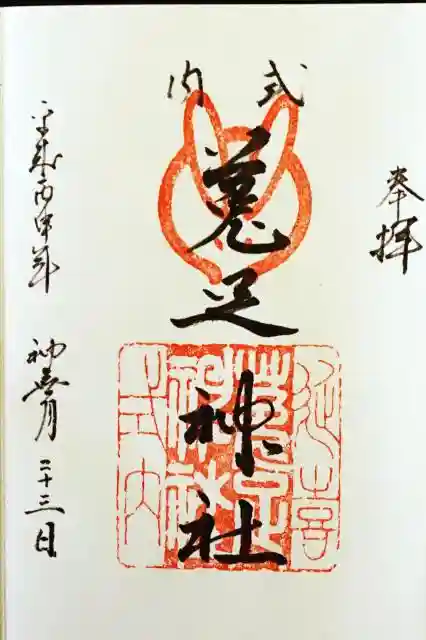 奉拝
式内
菟足神社
延喜
菟足
神社
式内
平成丙申年 神無月 二十三日